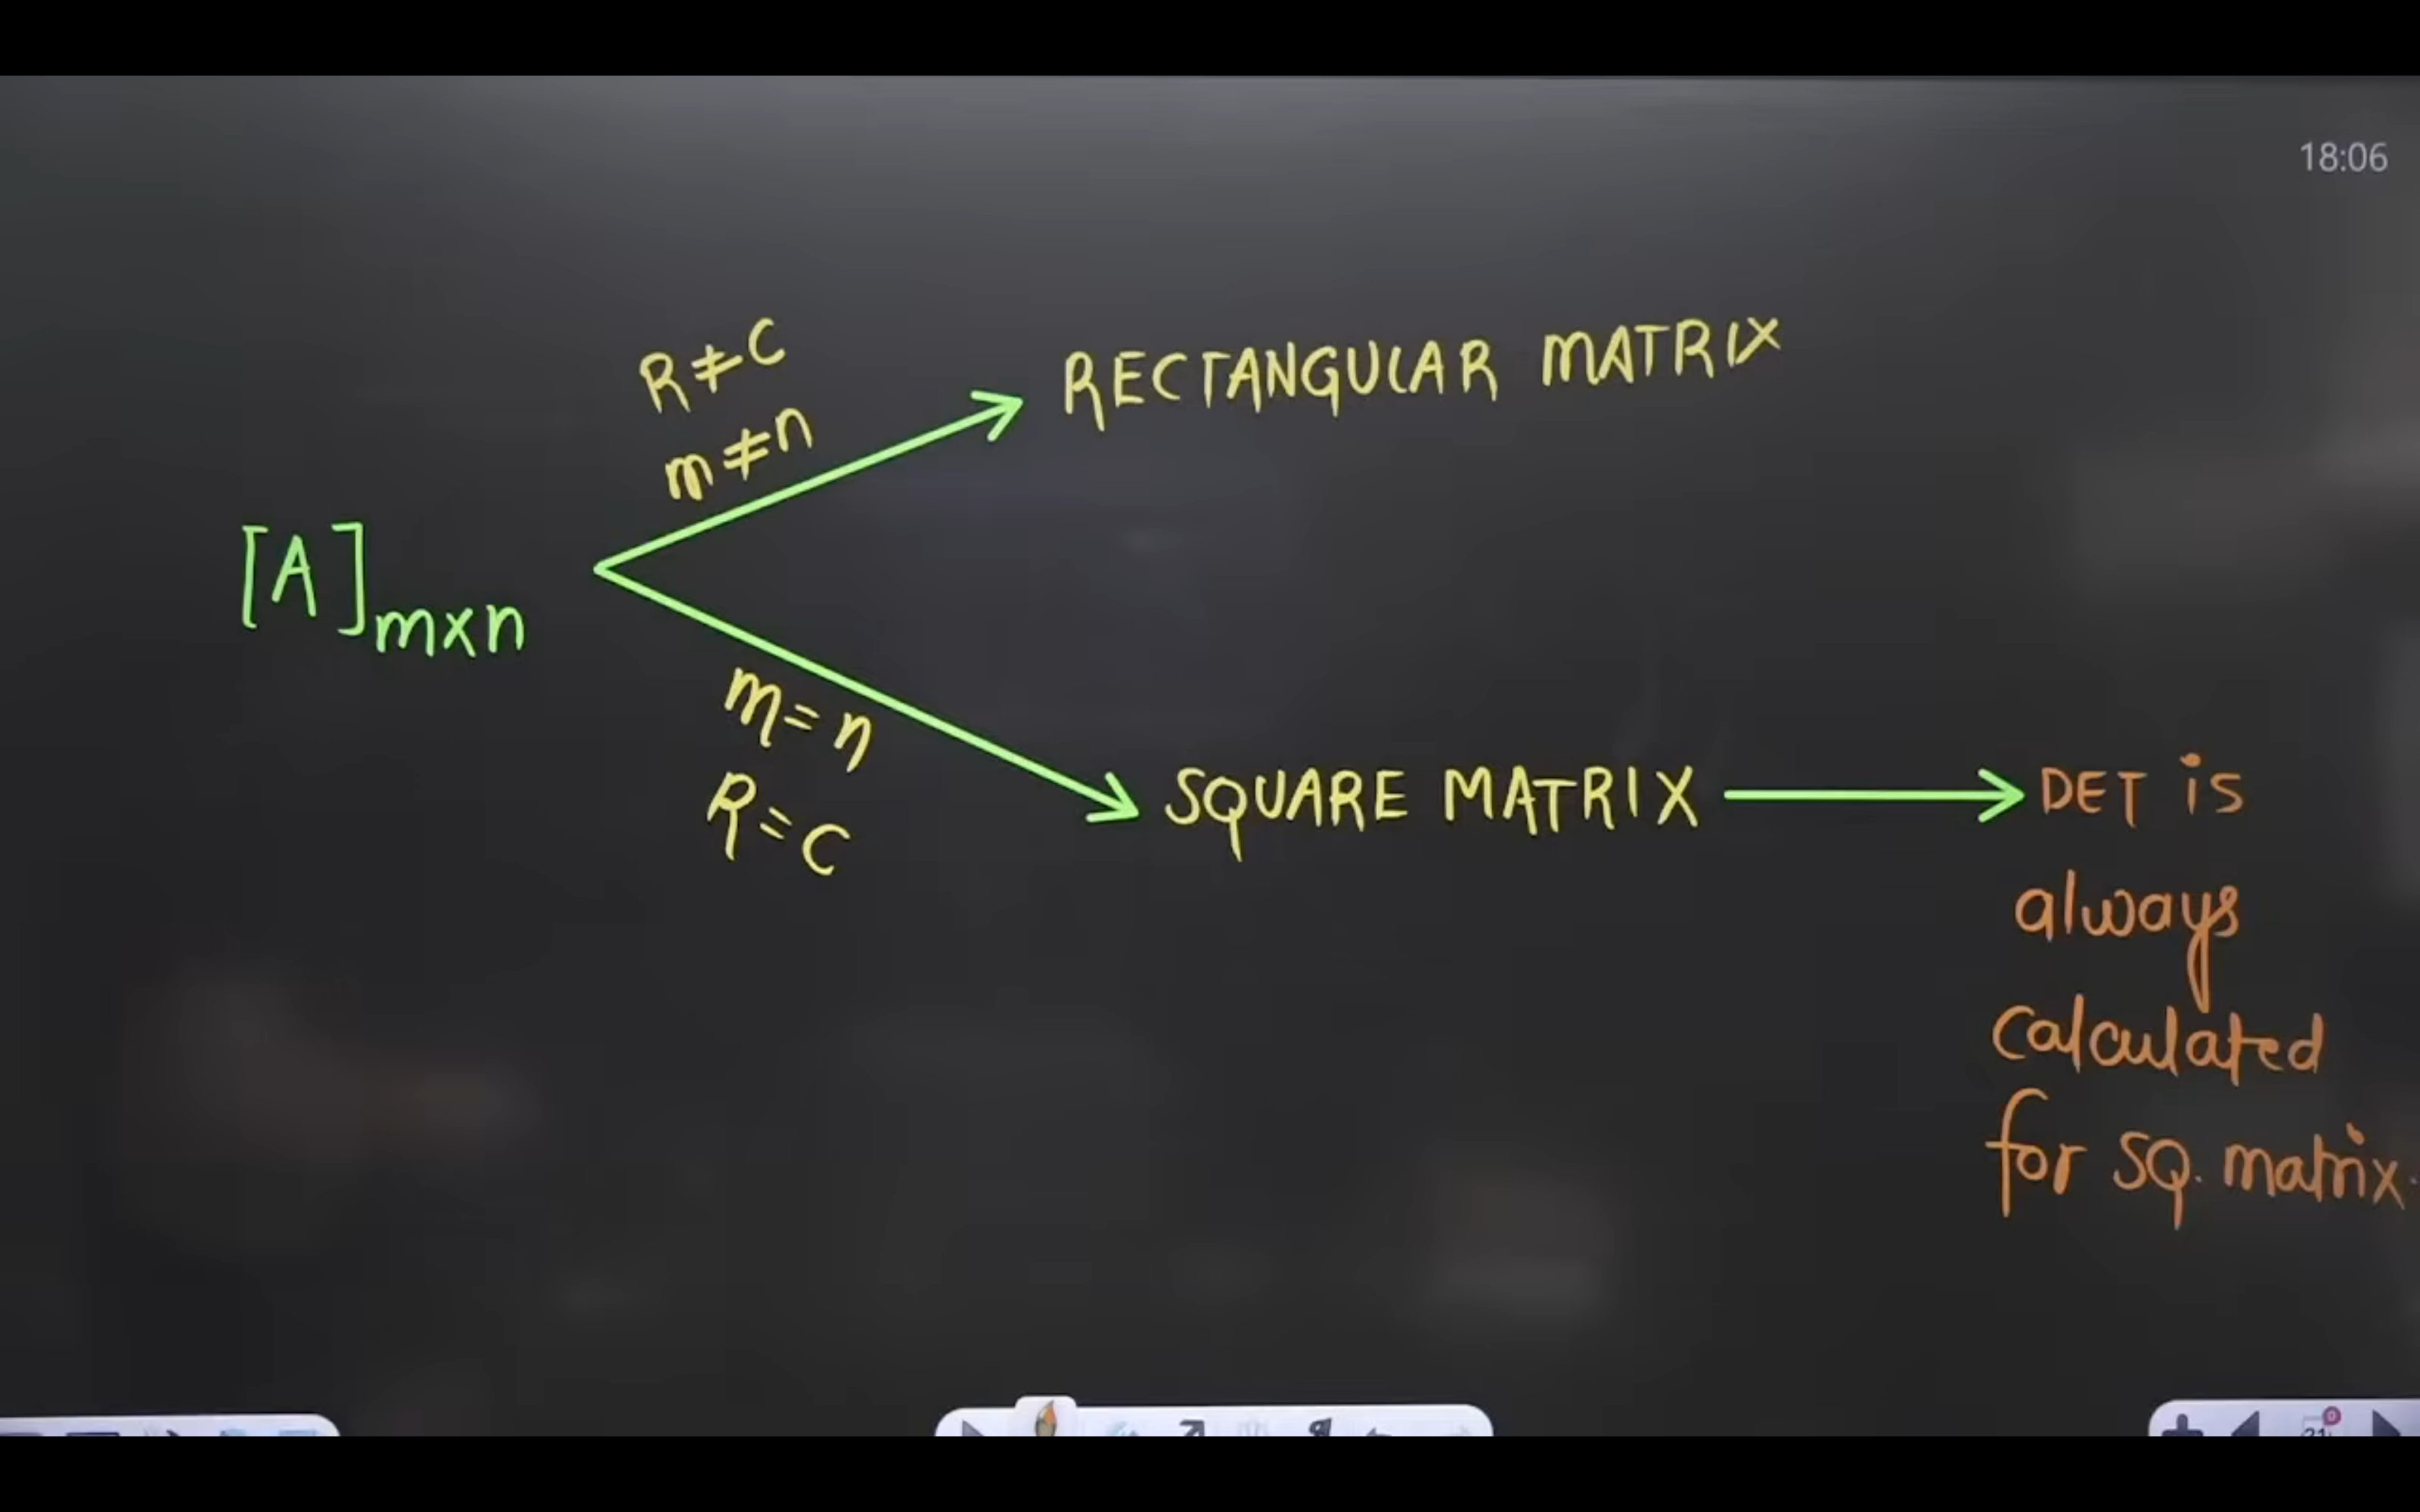 18:06
R≠C
m≠n
RECTANGULAR MATRIX
[A]m×n
m=n
R=C
SQUARE MATRIX
DET is
always
calculated
for SQ. matrix.